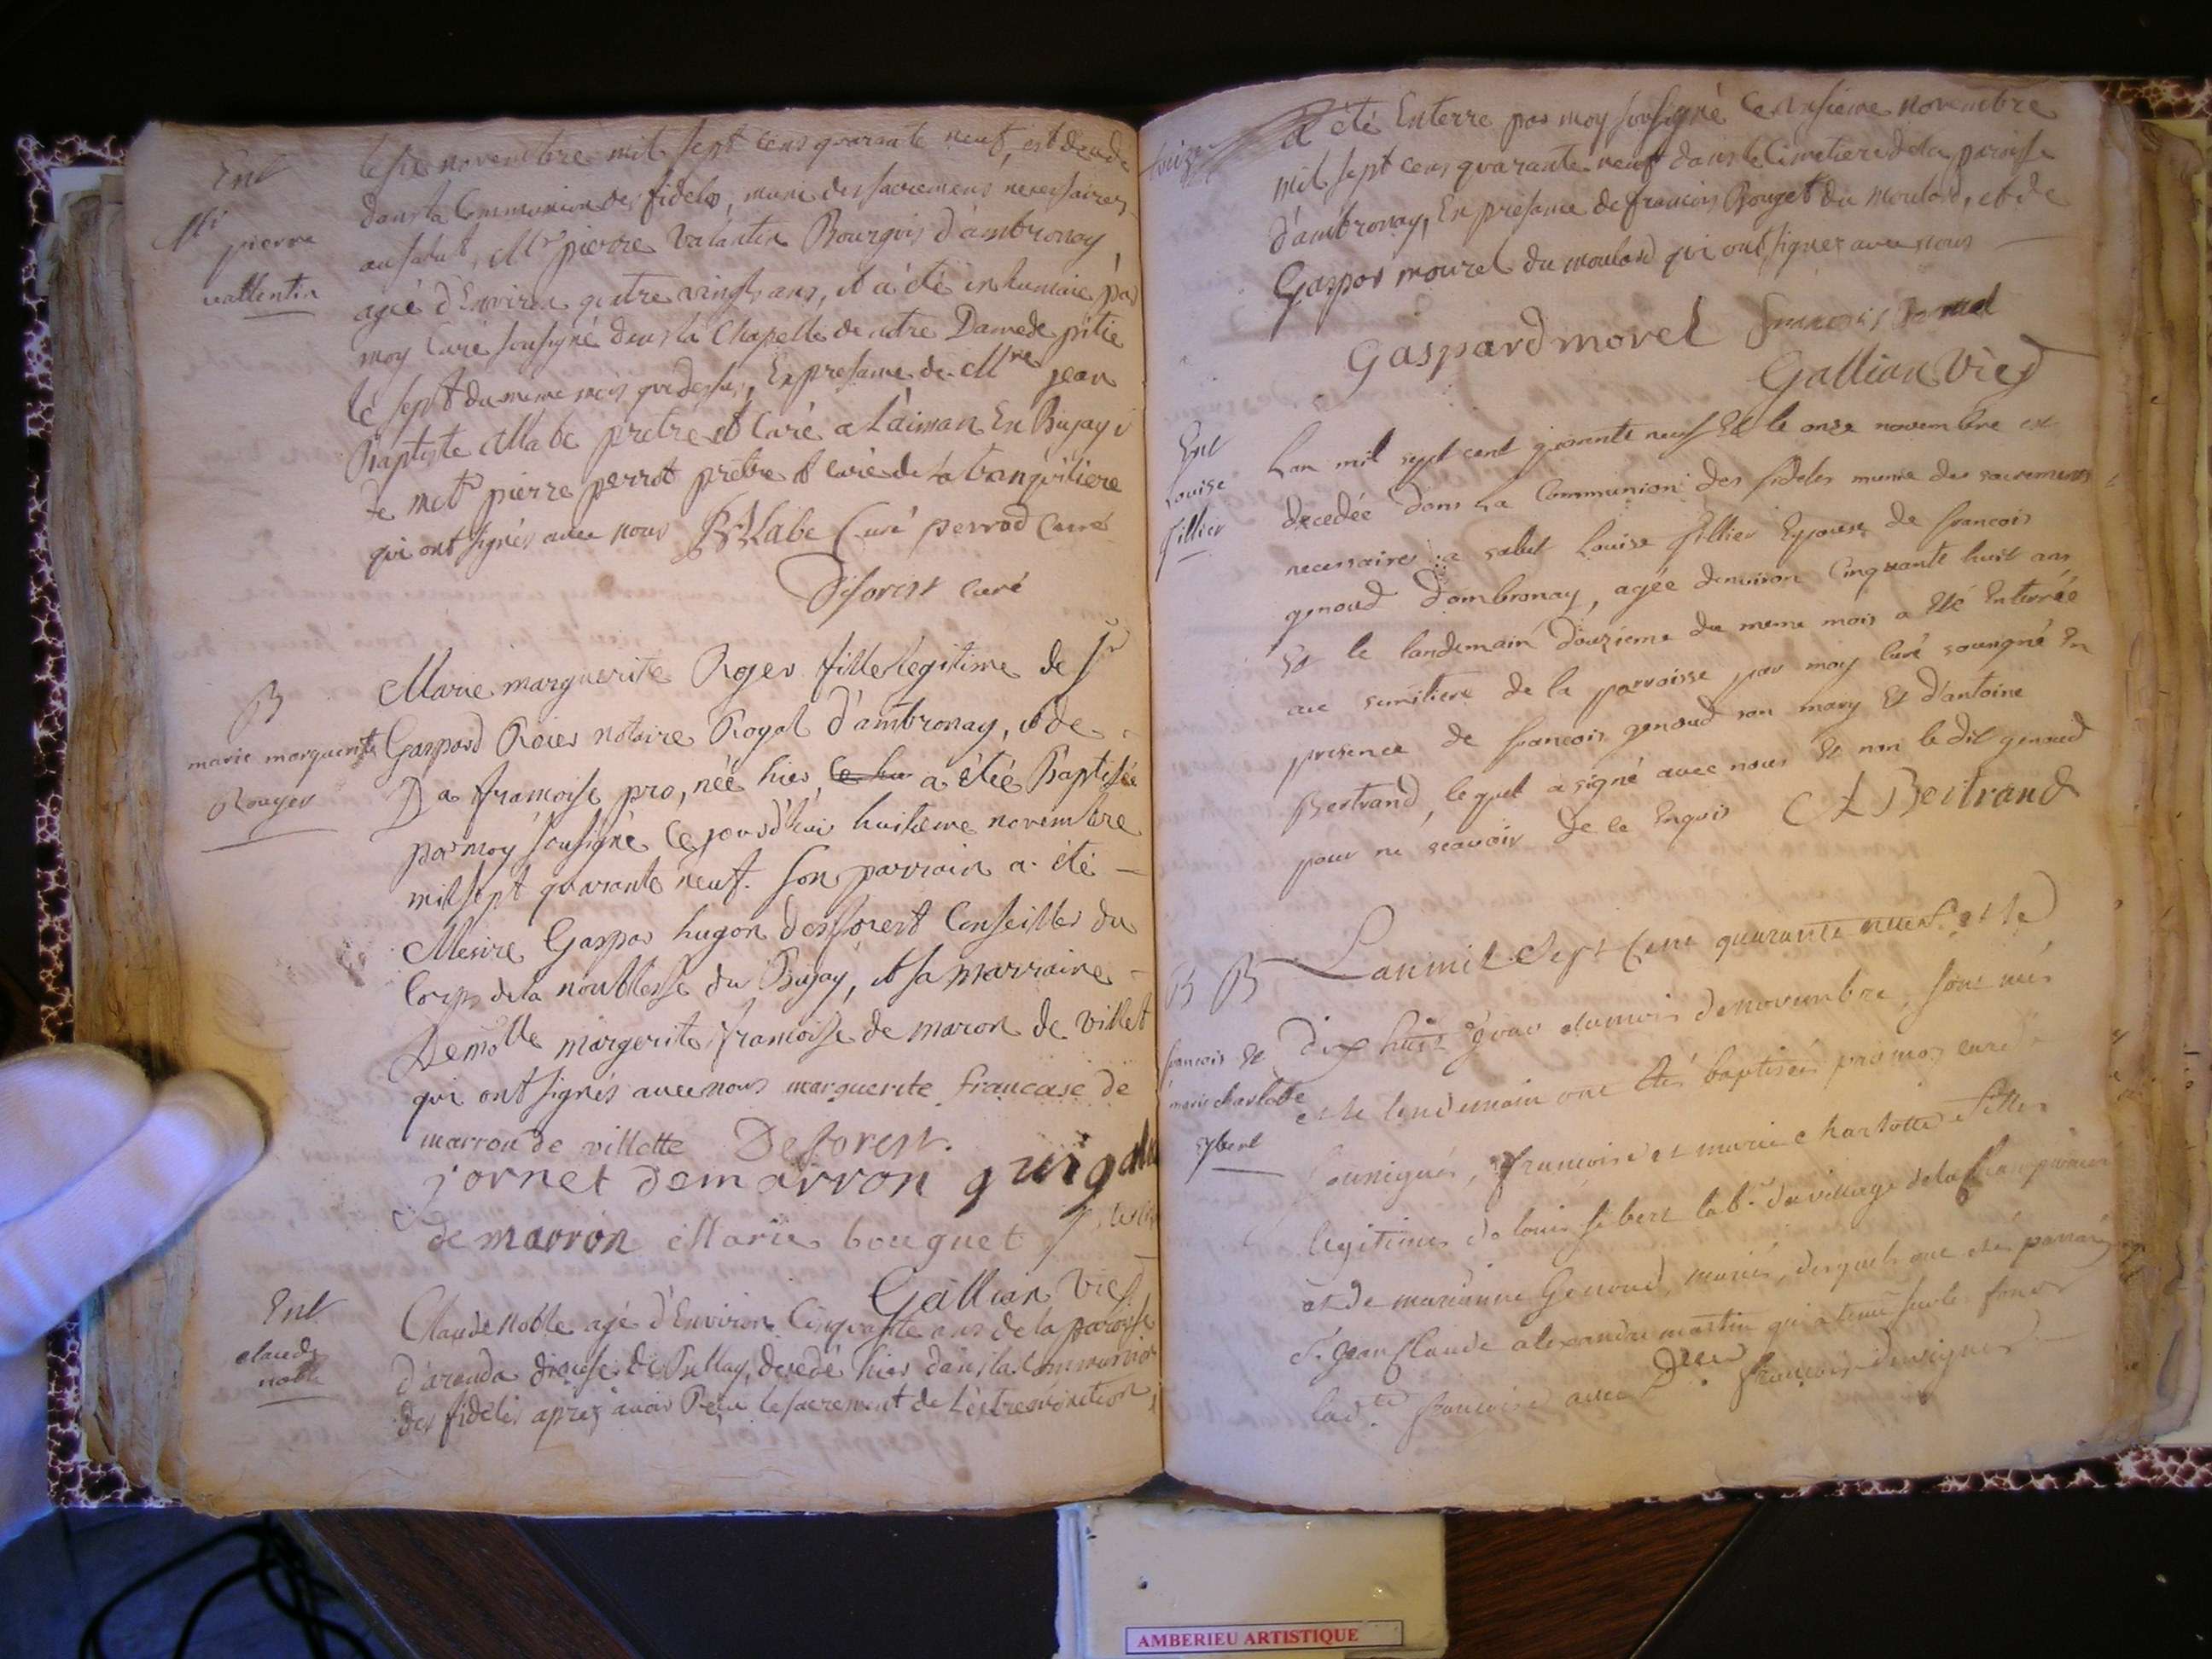 Ent
Mr
pierre
vallentin
le six novembre mil sept cens quarante neuf, est decedé
dans la Communion des fideles, muni des sacremens necessaires
au salut, Mr pierre Valantin Bourgois d'ambronay,
agié d'Environ quatre vingts ans, et a été inhumaié par
moy Curé sousigné dans la Chapelle de notre Dame de pitié
le sept du meme mois que dessus, En presance de Mre jean
Baptiste Mabe pretre et Curé a Laiman En Bugay
de Mctr pierre perrot pretre et curé de la tranquiliere
qui ont signés avec nous Labe Curé perrod Curé
Deforest curé
B
marie marguerite
Rouyer
Marie marguerite Royer fille legitime de Sr
Gaspard Roier notaire Royal d'ambronay, et de
Da framoise pro, née hier, a étée Baptisée
par moy sousigné Cejourd'huis huitieme novembre
mil sept quarante neuf. son parrain a été
Mesire Gaspar hugon desforest Conseiller du
Corps de la noublesse du Bugay, et sa marraine
Demolle margerite framoise de maron de villet
qui ont signés avec nous marguerite francase de
marron de villette Deforest.
jornet demarron
de marron Marie bouguet
Gallian vic
Ent
claude
noble
Claude Noble agé d'Environ Cinquante ans de la paroisse
d'aranda diocese de Bellay, decedé hier dans la Communion
des fideles aprez avoir Reçu le sacrement de L'extremonction,
a été Enterre par moy sousigné Ce onsieme novembre
mil sept cens quarante neuf dans le Cimetiere de la paroisse
d'ambronay, En presance de francois Bouget du Moulard, et de
Gaspar mourel du moulard qui ont signer avec nous
Gaspard morel francois
Gallian vic
Ent
Louise
fillier
Lan mil sept cent quarante neuf Et le onze novembre est
decedée dans La Communion des fideles munie des sacremens
necessaires a salut Louise fillier Epouse de francois
genoud d'ambronay, agée denviron Cinquante huit ans
Et le landemain douzieme du meme mois a Eté Enterrée
au semitiere de la parroisse par moy Curé sousigné En
presence de francois genoud son mary Et d'antoine
Bertrand, lequel a signé avec nous Et non le dit genoud
pour ne scavoir de ce Enquis A Bertrand
B B
francois Et
marie charlotte
sybert
Lanmil Sept Cent quarante neuf et le
dix huit jour dumois denovembre, sont nés
et le lendemain ont étés baptisés par moy curé
sousignés, francoise et marie charlotte filles
legitimes de louis sibert labr. du village de la
et de marianne Genoud, mariés, desquels ont eté parrain
Sr. jean Claude alexandre martin qui a tenu sur les fonds
ladte. francoise avec Dlle francoise